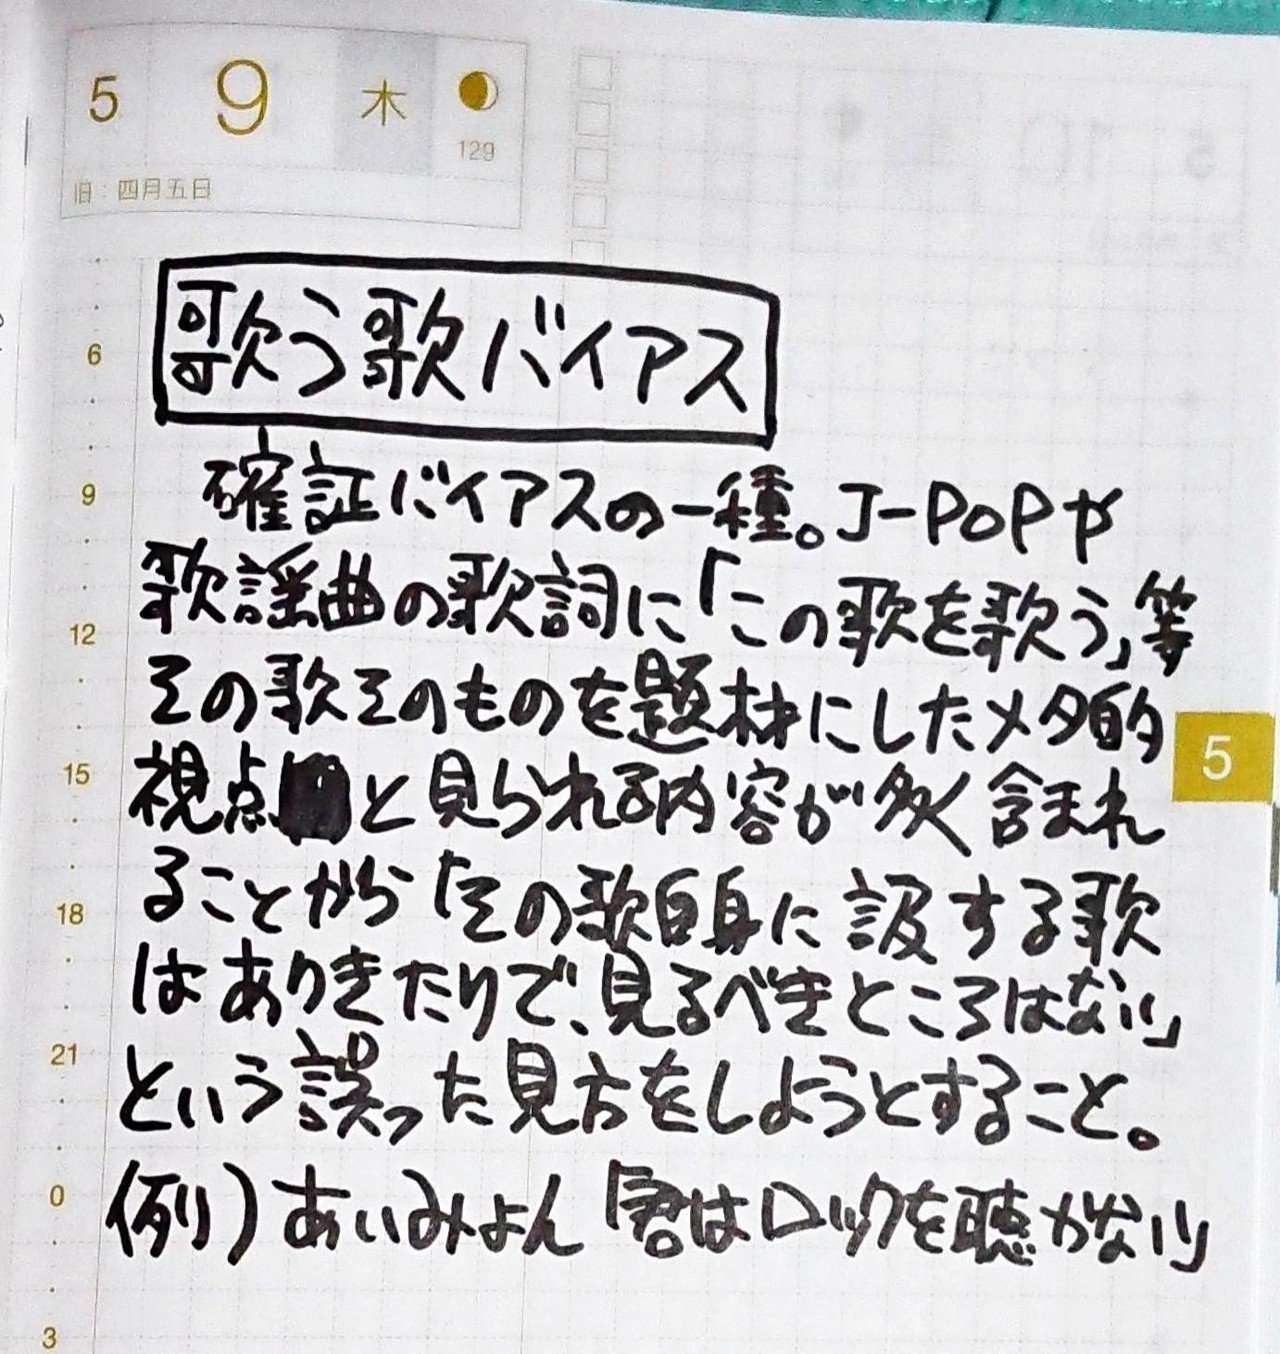 5 9 木
129
旧：四月五日
歌う歌バイアス
6
確証バイアスの一種。J-POPや
9
歌謡曲の歌詞に「この歌を歌う」等
12
その歌そのものを題材にしたメタ的
視点と見られる内容が多く含まれ
15
5
ることから「その歌自身に言及する歌
18
はありきたりで、見るべきところはない」
という誤った見方をしようとすること。
21
例)あいみょん「君はロックを聴かない」
0
3